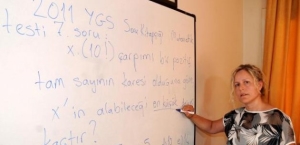 2011 YGS Soru Kitapçığı Matematik
testi 7. soru:
x.(10!) çarpımı bir pozitif
tam sayının karesi olduğuna göre
x'in alabileceği en küçük
kaçtır?